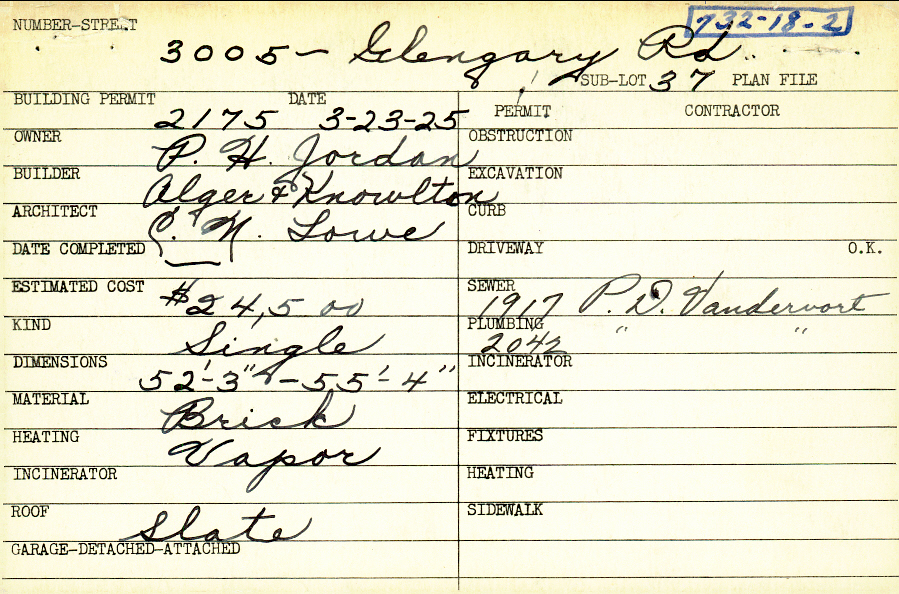 NUMBER-STREET 732-18-2
3005- Glengary Rd.
SUB-LOT 37 PLAN FILE
BUILDING PERMIT 2175 DATE 3-23-25
PERMIT CONTRACTOR
OWNER P. H. Jordan
OBSTRUCTION
BUILDER Alger & Knowlton
EXCAVATION
ARCHITECT C. N. Lowe
CURB
DATE COMPLETED
DRIVEWAY O.K.
ESTIMATED COST $24,500
SEWER 1917 P. D. Vandervort
KIND Single
PLUMBING 2042 " "
DIMENSIONS 52'-3" - 55'-4"
INCINERATOR
MATERIAL Brick
ELECTRICAL
HEATING Vapor
FIXTURES
INCINERATOR
HEATING
ROOF Slate
SIDEWALK
GARAGE-DETACHED-ATTACHED